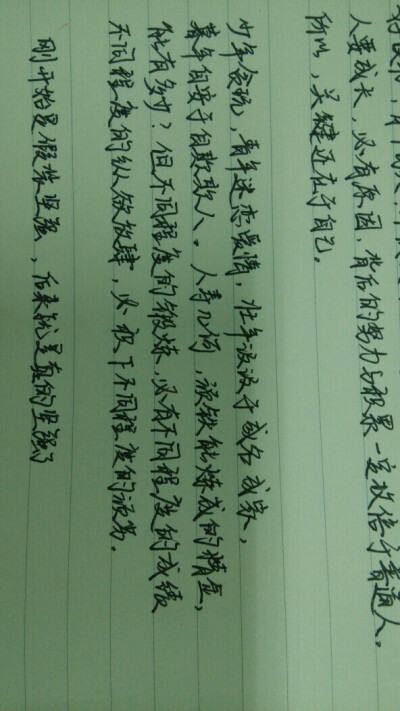 人要成长,必有原因,背后的努力与积累一定数倍于普通人。
所以,关键还在于自己。
少年贪玩,青年迷恋爱情,壮年汲汲于成名成家,
暮年自安于自欺欺人。人寿几何,顽铁能炼成的精金,
能有多少?但不同程度的锻炼,必有不同程度的成绩
不同程度的纵欲放肆,必积下不同程度的顽劣。
刚开始是假装坚强,后来就是真的坚强了